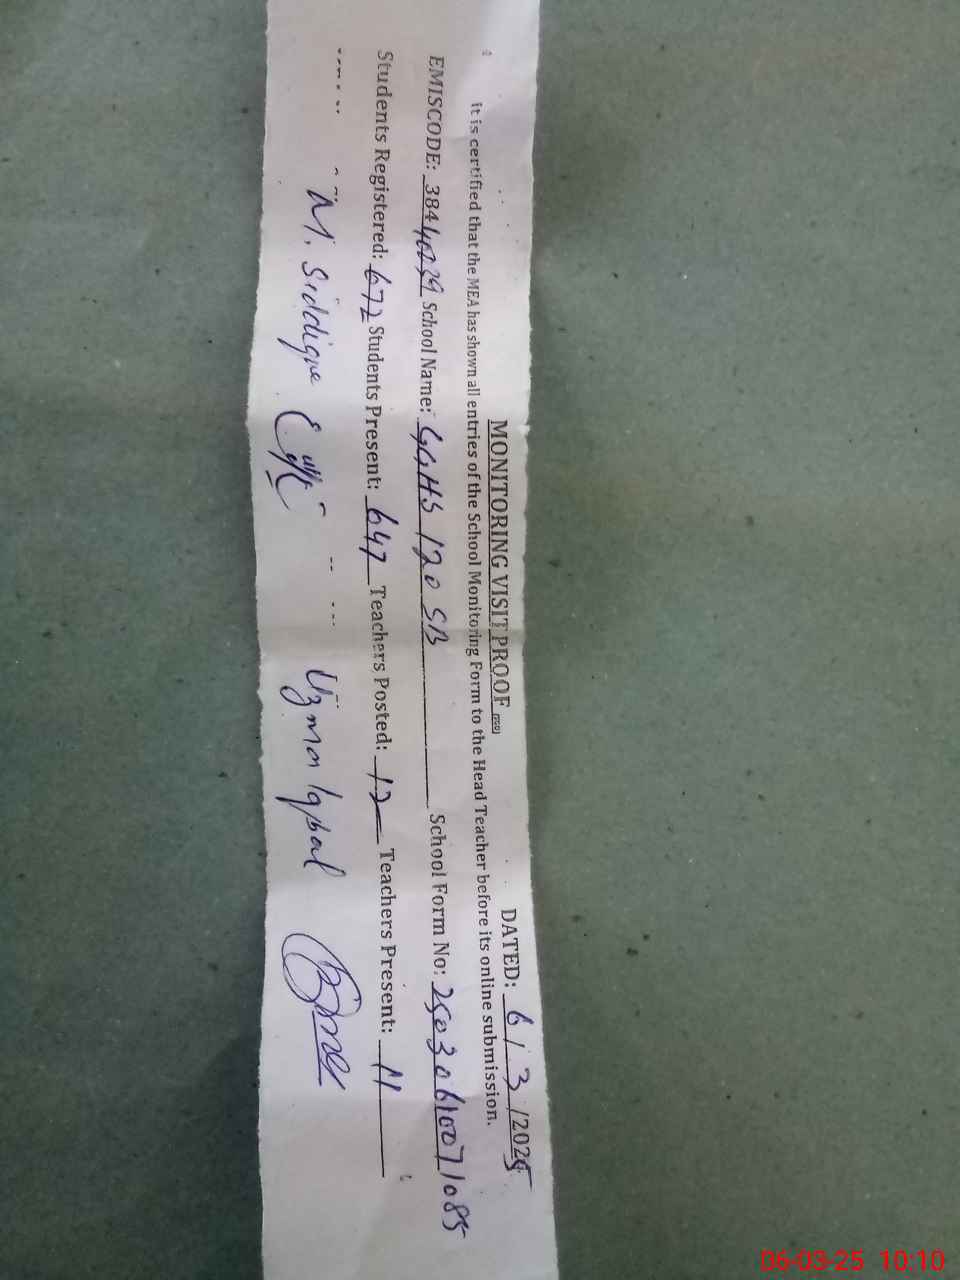 MONITORING VISIT PROOF
DATED: 6/3/2025
it is certified that the MEA has shown all entries of the School Monitoring Form to the Head Teacher before its online submission.
EMISCODE: 38440239 School Name: GGHS 120 SB School Form No: 25030610071085
Students Registered: 672 Students Present: 647 Teachers Posted: 12 Teachers Present: 11
M. Siddique Uzma Iqbal
06-03-25 10:10